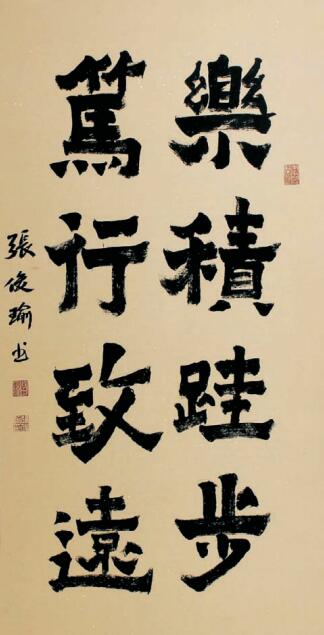 樂積跬步
篤行致遠
張俊瑜书